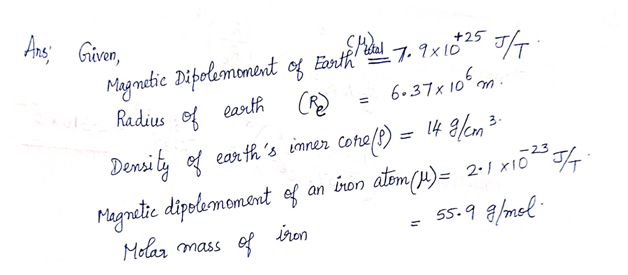 Ans; Given,
Magnetic Dipolemoment of Earth (μ)total = 7.9x10^+25 J/T.
Radius of earth (Re) = 6.37x10^6 m.
Density of earth's inner core(ρ) = 14 g/cm^3.
Magnetic dipolemoment of an iron atom(μ)= 2.1x10^-23 J/T.
Molar mass of iron = 55.9 g/mol.